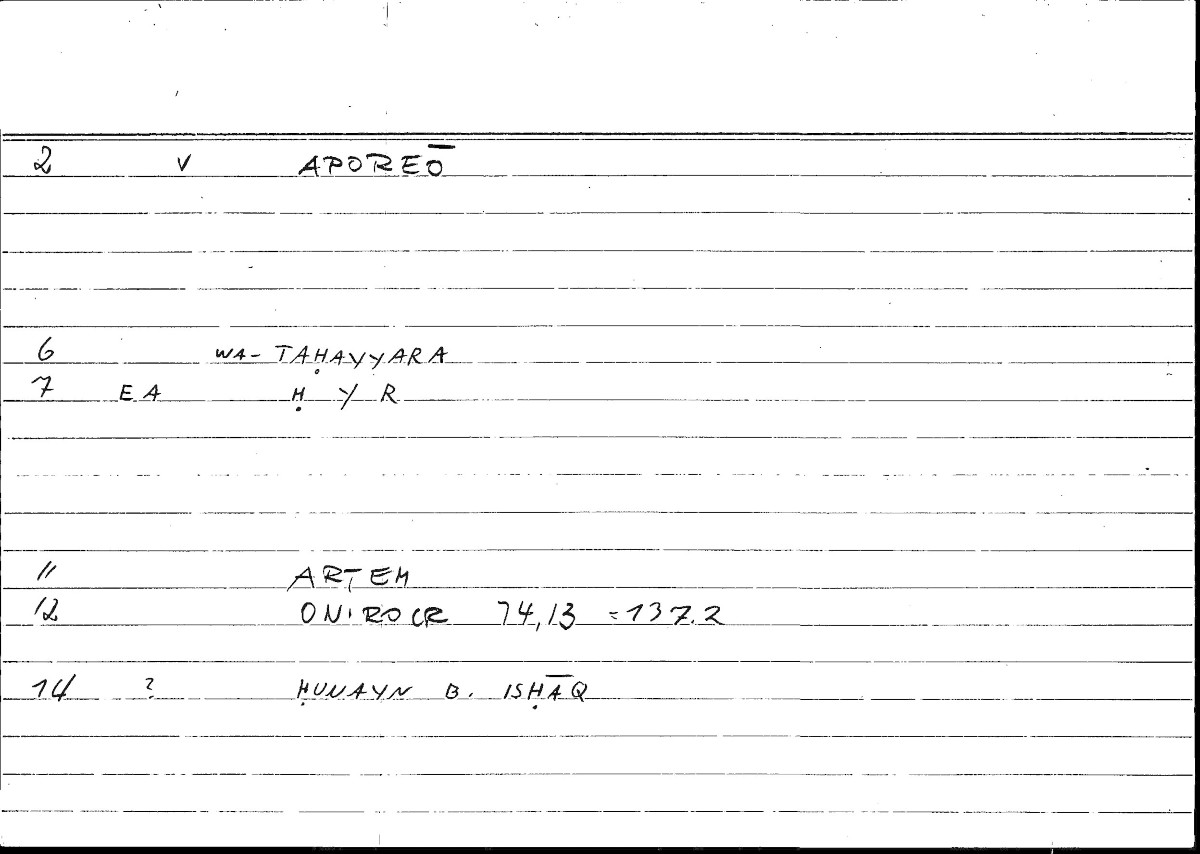 2 V APOREŌ
6 WA- TAḤAYYARA
7 EA Ḥ Y R
11 ARTEM
12 ONIROCR 74,13 =137.2
14 ? ḤUNAYN B. ISḤĀQ